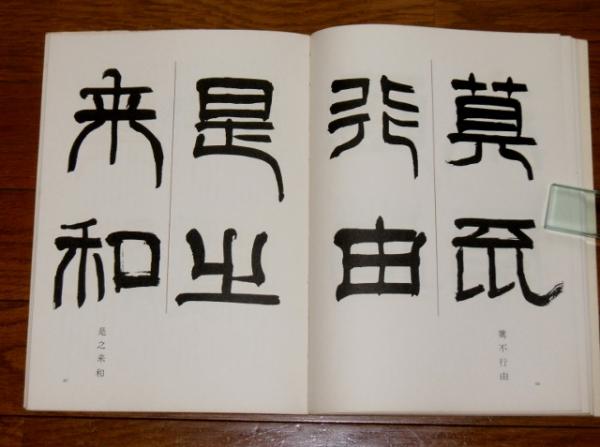 莫不
行由
莫不行由
是之
来和
是之来和